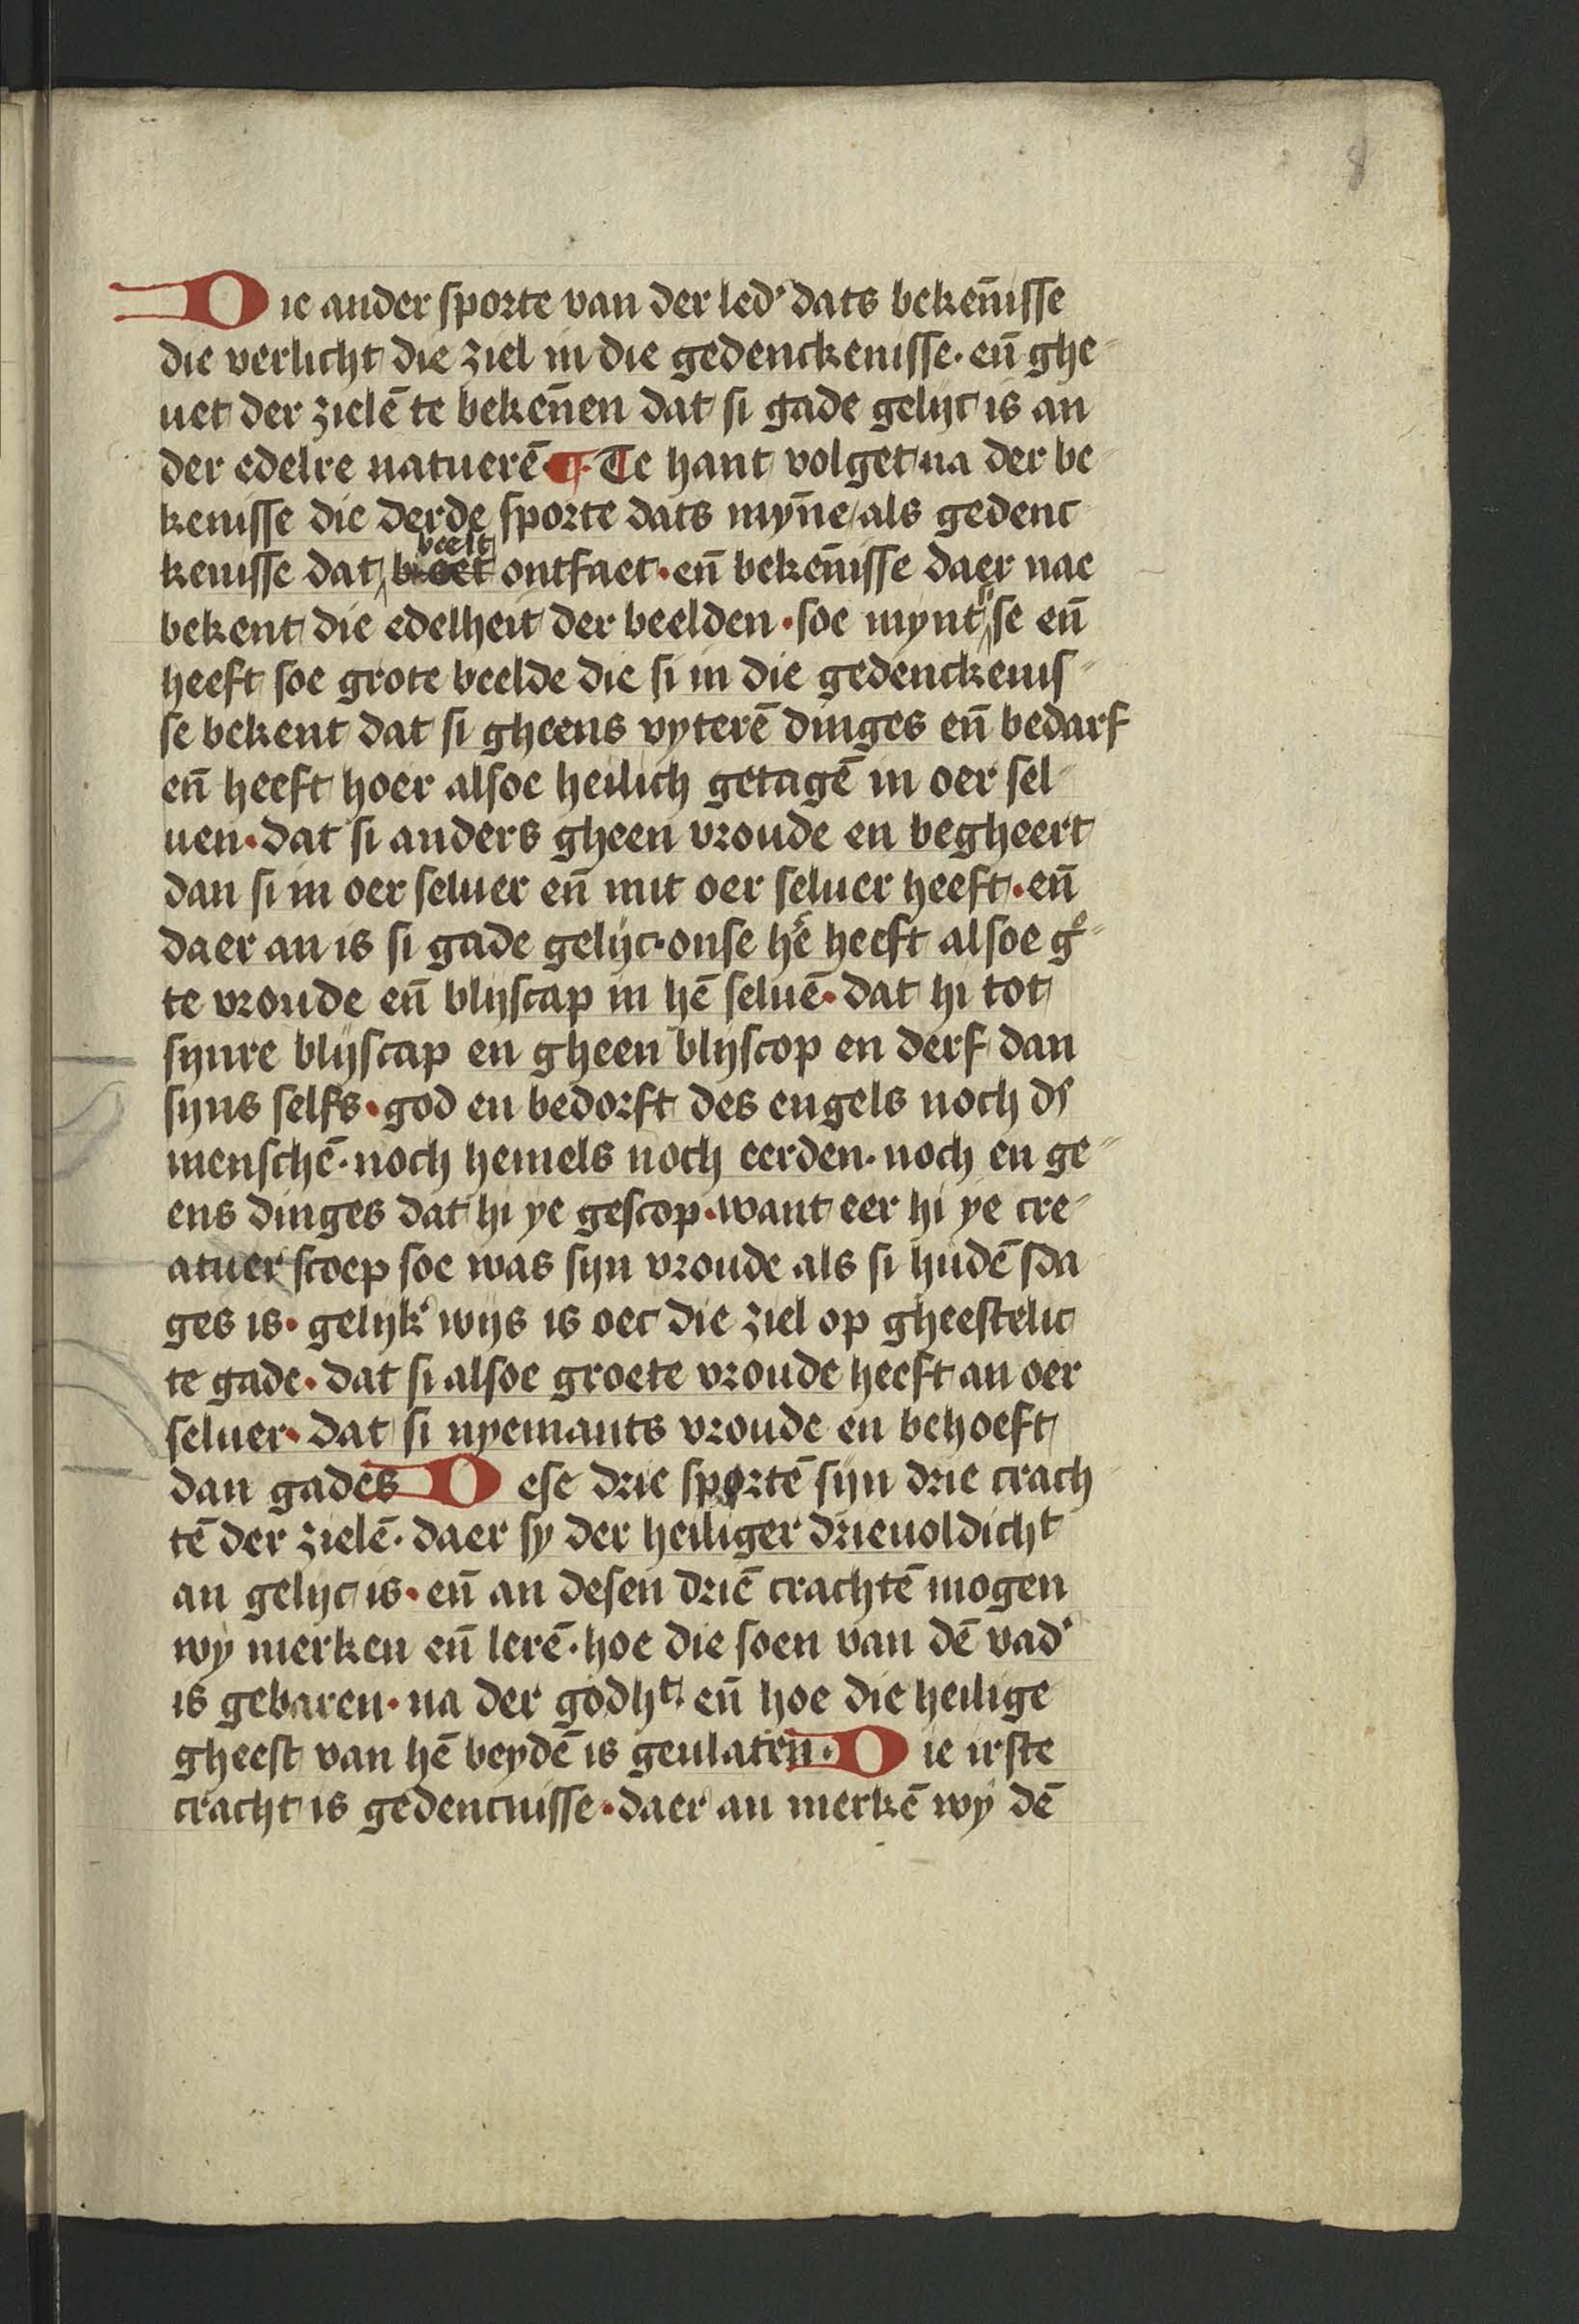 8
Die ander sporte van der led' dats bekēnisse
die verlicht die ziel in die gedenckenisse · en̄ ghe
uet der zielē te bekēnen dat si gade gelijc is an
der edelre natuerē · ¶ · Te hant volget na der be
kenisse die derde sporte dats myn̄e / als gedenc
kenisse dat beelt ontfaet · en̄ bekēnisse daer nae
bekent die edelheit der beelden · soe mynt se en̄
heeft soe grote beelde die si in die gedenckenis
se bekent dat si gheens vyterē dinges en̄ bedarf
en̄ heeft hoer alsoe heilich getagē in oer sel
uen · dat si anders gheen vroude en begheert
dan si in oer seluer en̄ mit oer seluer heeft · en̄
daer an is si gade gelijc · onse hē heeft alsoe gͦ
te vroude en̄ blijscap in hē seluē · dat hi tot
synre blijscap en gheen blijscop en derf dan
sijns selfs · god en bedorft des engels noch ds
menschē · noch hemels noch eerden · noch en ge
ens dinges dat hi ye gescop · want eer hi ye cre
atuer scoep soe was sijn vroude als si hudē sda
ges is · gelijk' wijs is oec die ziel op gheestelic
te gade · dat si alsoe groete vroude heeft an oer
seluer · dat si nyemants vroude en behoeft
dan gades Dese drie sportē sijn drie crach
tē der zielē · daer sy der heiliger drieuoldicht
an gelijc is · en̄ an desen driē crachtē mogen
wy merken en̄ lerē · hoe die soen van dē vad'
is gebaren · na der godhᵗ · en̄ hoe die heilige
gheest van hē beydē is geulaten · Die irste
cracht is gedencnisse · daer an merkē wy dē